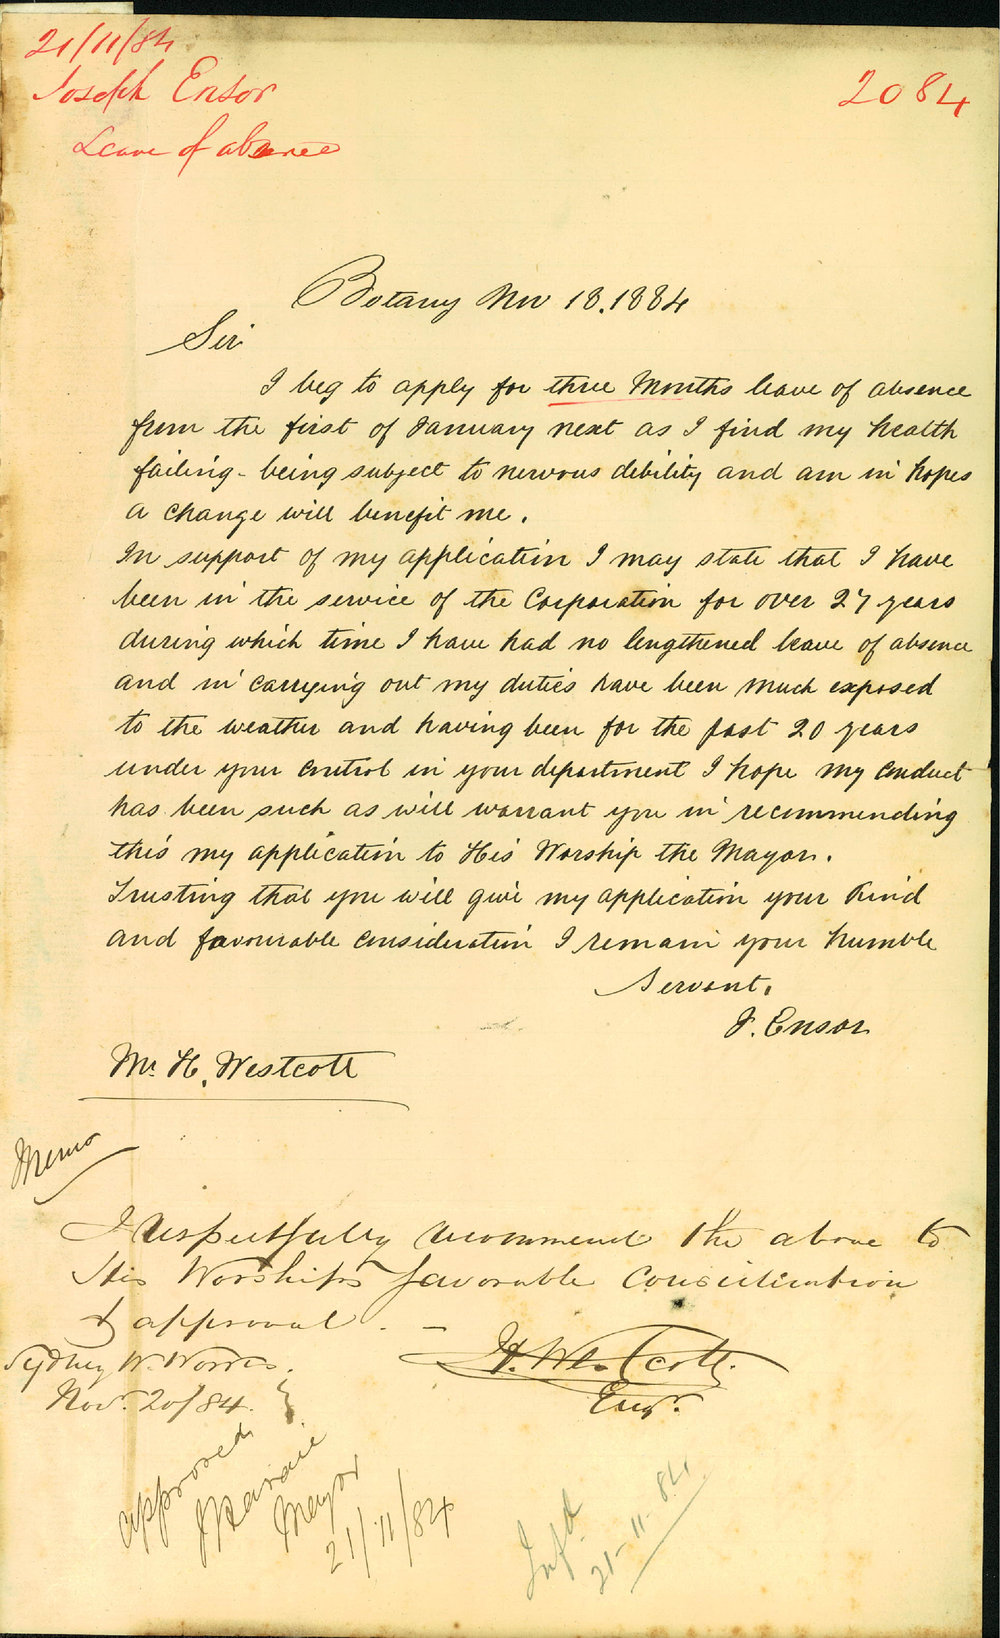 21/11/84
Joseph Ensor
Leave of absence
2084
Botany Nov 18. 1884
Sir
I beg to apply for three Months leave of absence
from the first of January next as I find my health
failing - being subject to nervous debility and am in hopes
a change will benefit me.
In support of my application I may state that I have
been in the service of the Corporation for over 27 years
during which time I have had no lengthened leave of absence
and in carrying out my duties have been much exposed
to the weather and having been for the past 20 years
under your control in your department I hope my conduct
has been such as will warrant you in recommending
this my application to His Worship the Mayor.
Trusting that you will give my application your kind
and favourable consideration I remain your humble
Servant.
J. Ensor
Mr. H. Westcott
Memo
I respectfully recommend the above to
His Worships favorable consideration
& approval. —
Sydney W. Works.
Nov. 20/84.
H. Westcott.
Engr.
Approved
Mayor
21/11/84
Inf'd
21-11-84